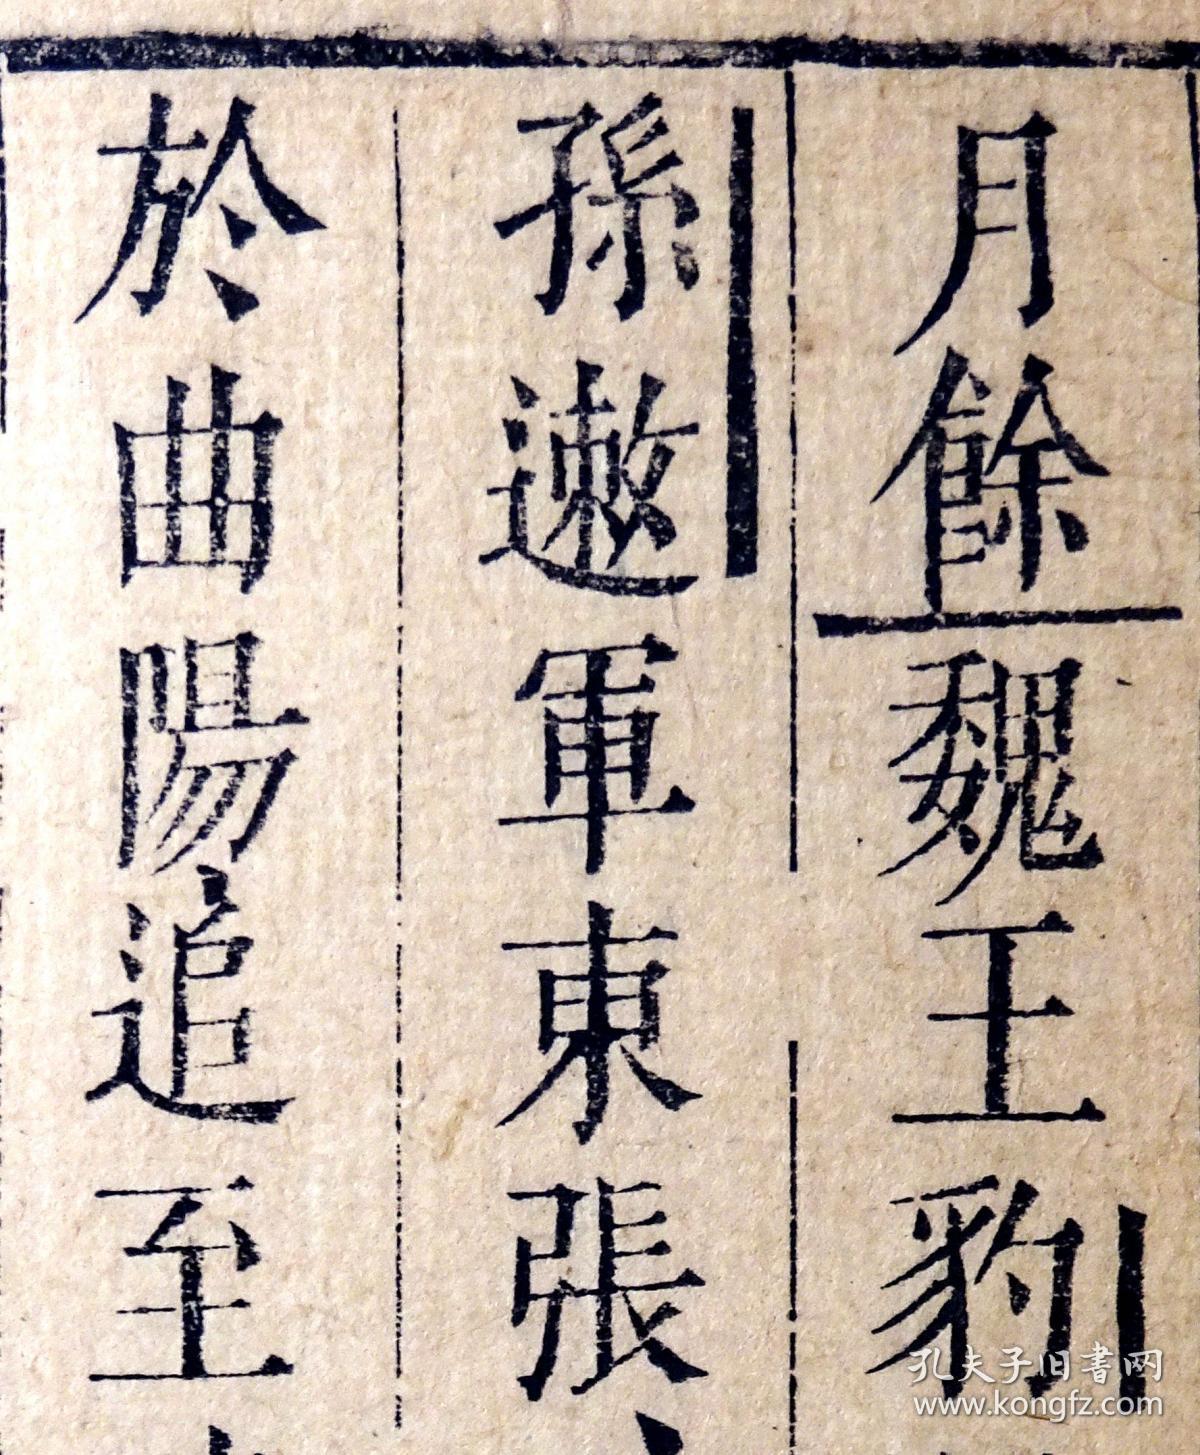 月餘魏王豹
孫遬軍東張
於曲陽追至
孔夫子旧書网
www.kongfz.com